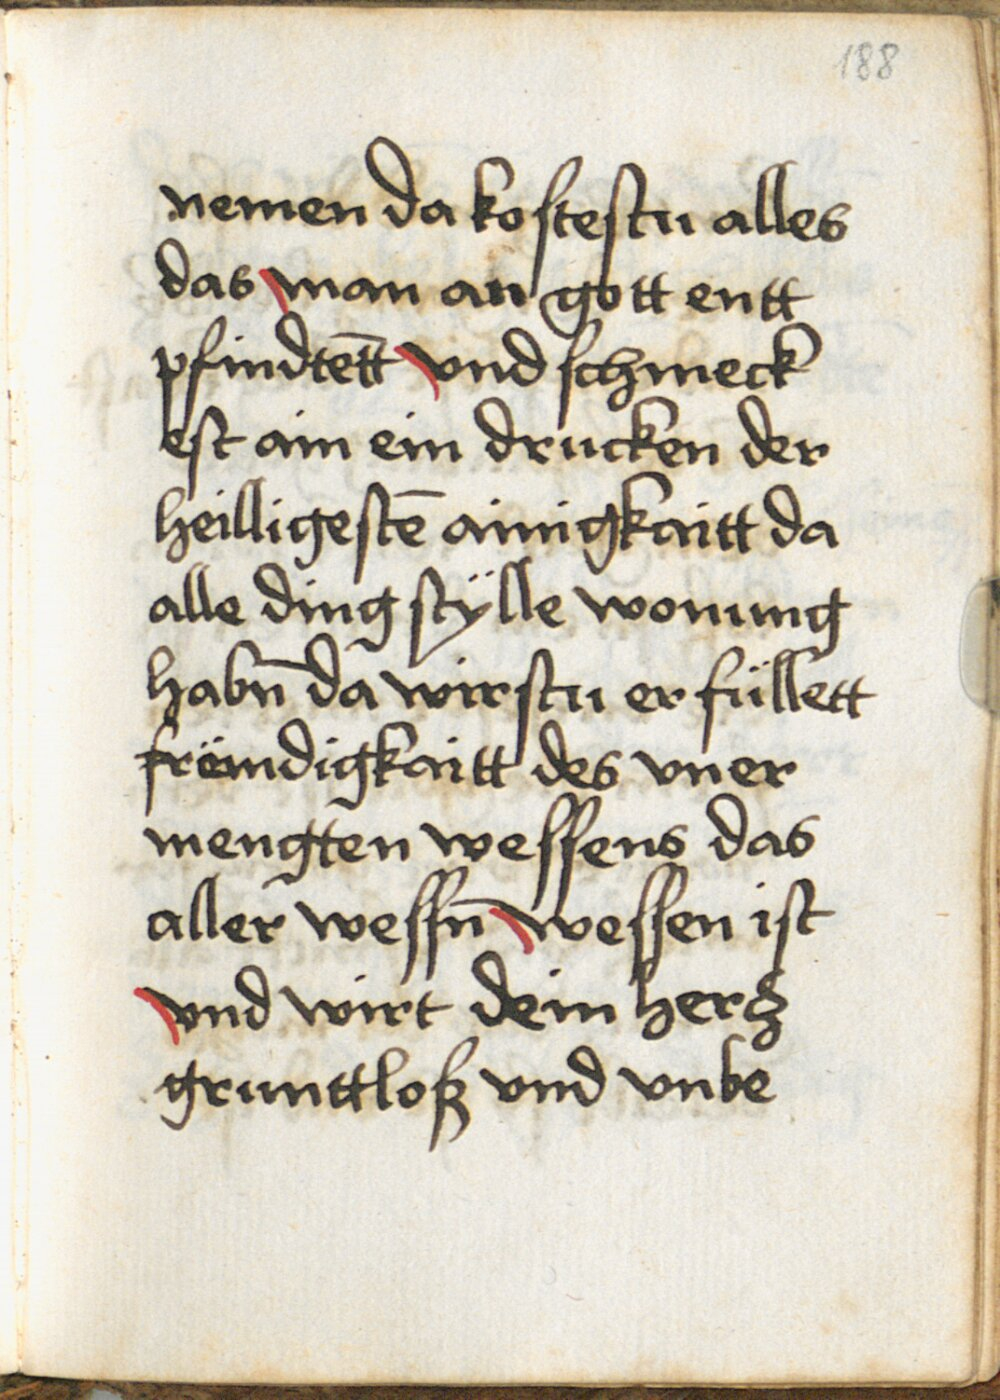 188
nemen da kostestu alles
das man an gott entt
pfindtet̄t vnd schmeck
est ain ein drucken der
heilligestē ainigkaitt da
alle ding stÿlle wonung
habn̄ da wirstu er füllett
frëmdigkaitt des vner
mengten wessens das
aller wessn̄ wessen ist
vnd wirt dein hertz
grunttloß vnd vnbe